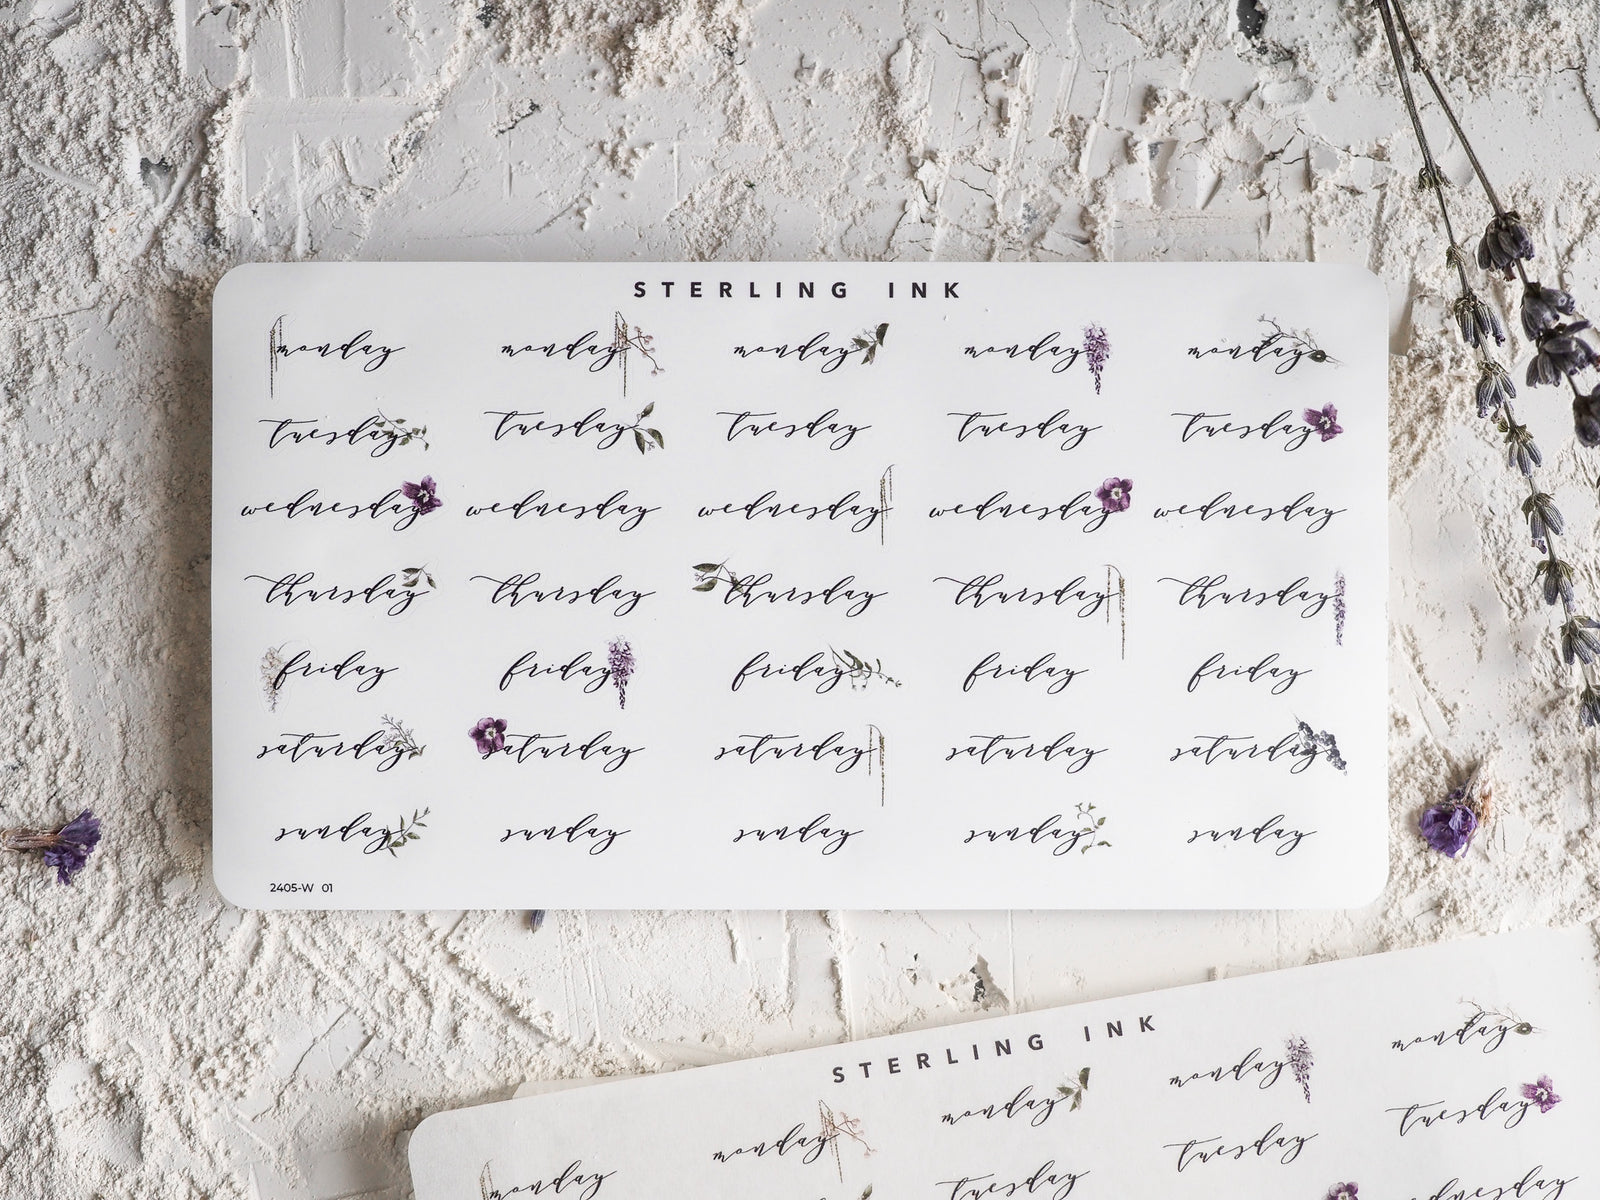 STERLING INK
monday monday monday monday monday
tuesday tuesday tuesday tuesday tuesday
wednesday wednesday wednesday wednesday wednesday
thursday thursday thursday thursday thursday
friday friday friday friday friday
saturday saturday saturday saturday saturday
sunday sunday sunday sunday sunday
2405-W 01
STERLING INK
monday monday monday monday monday
tuesday tuesday tuesday